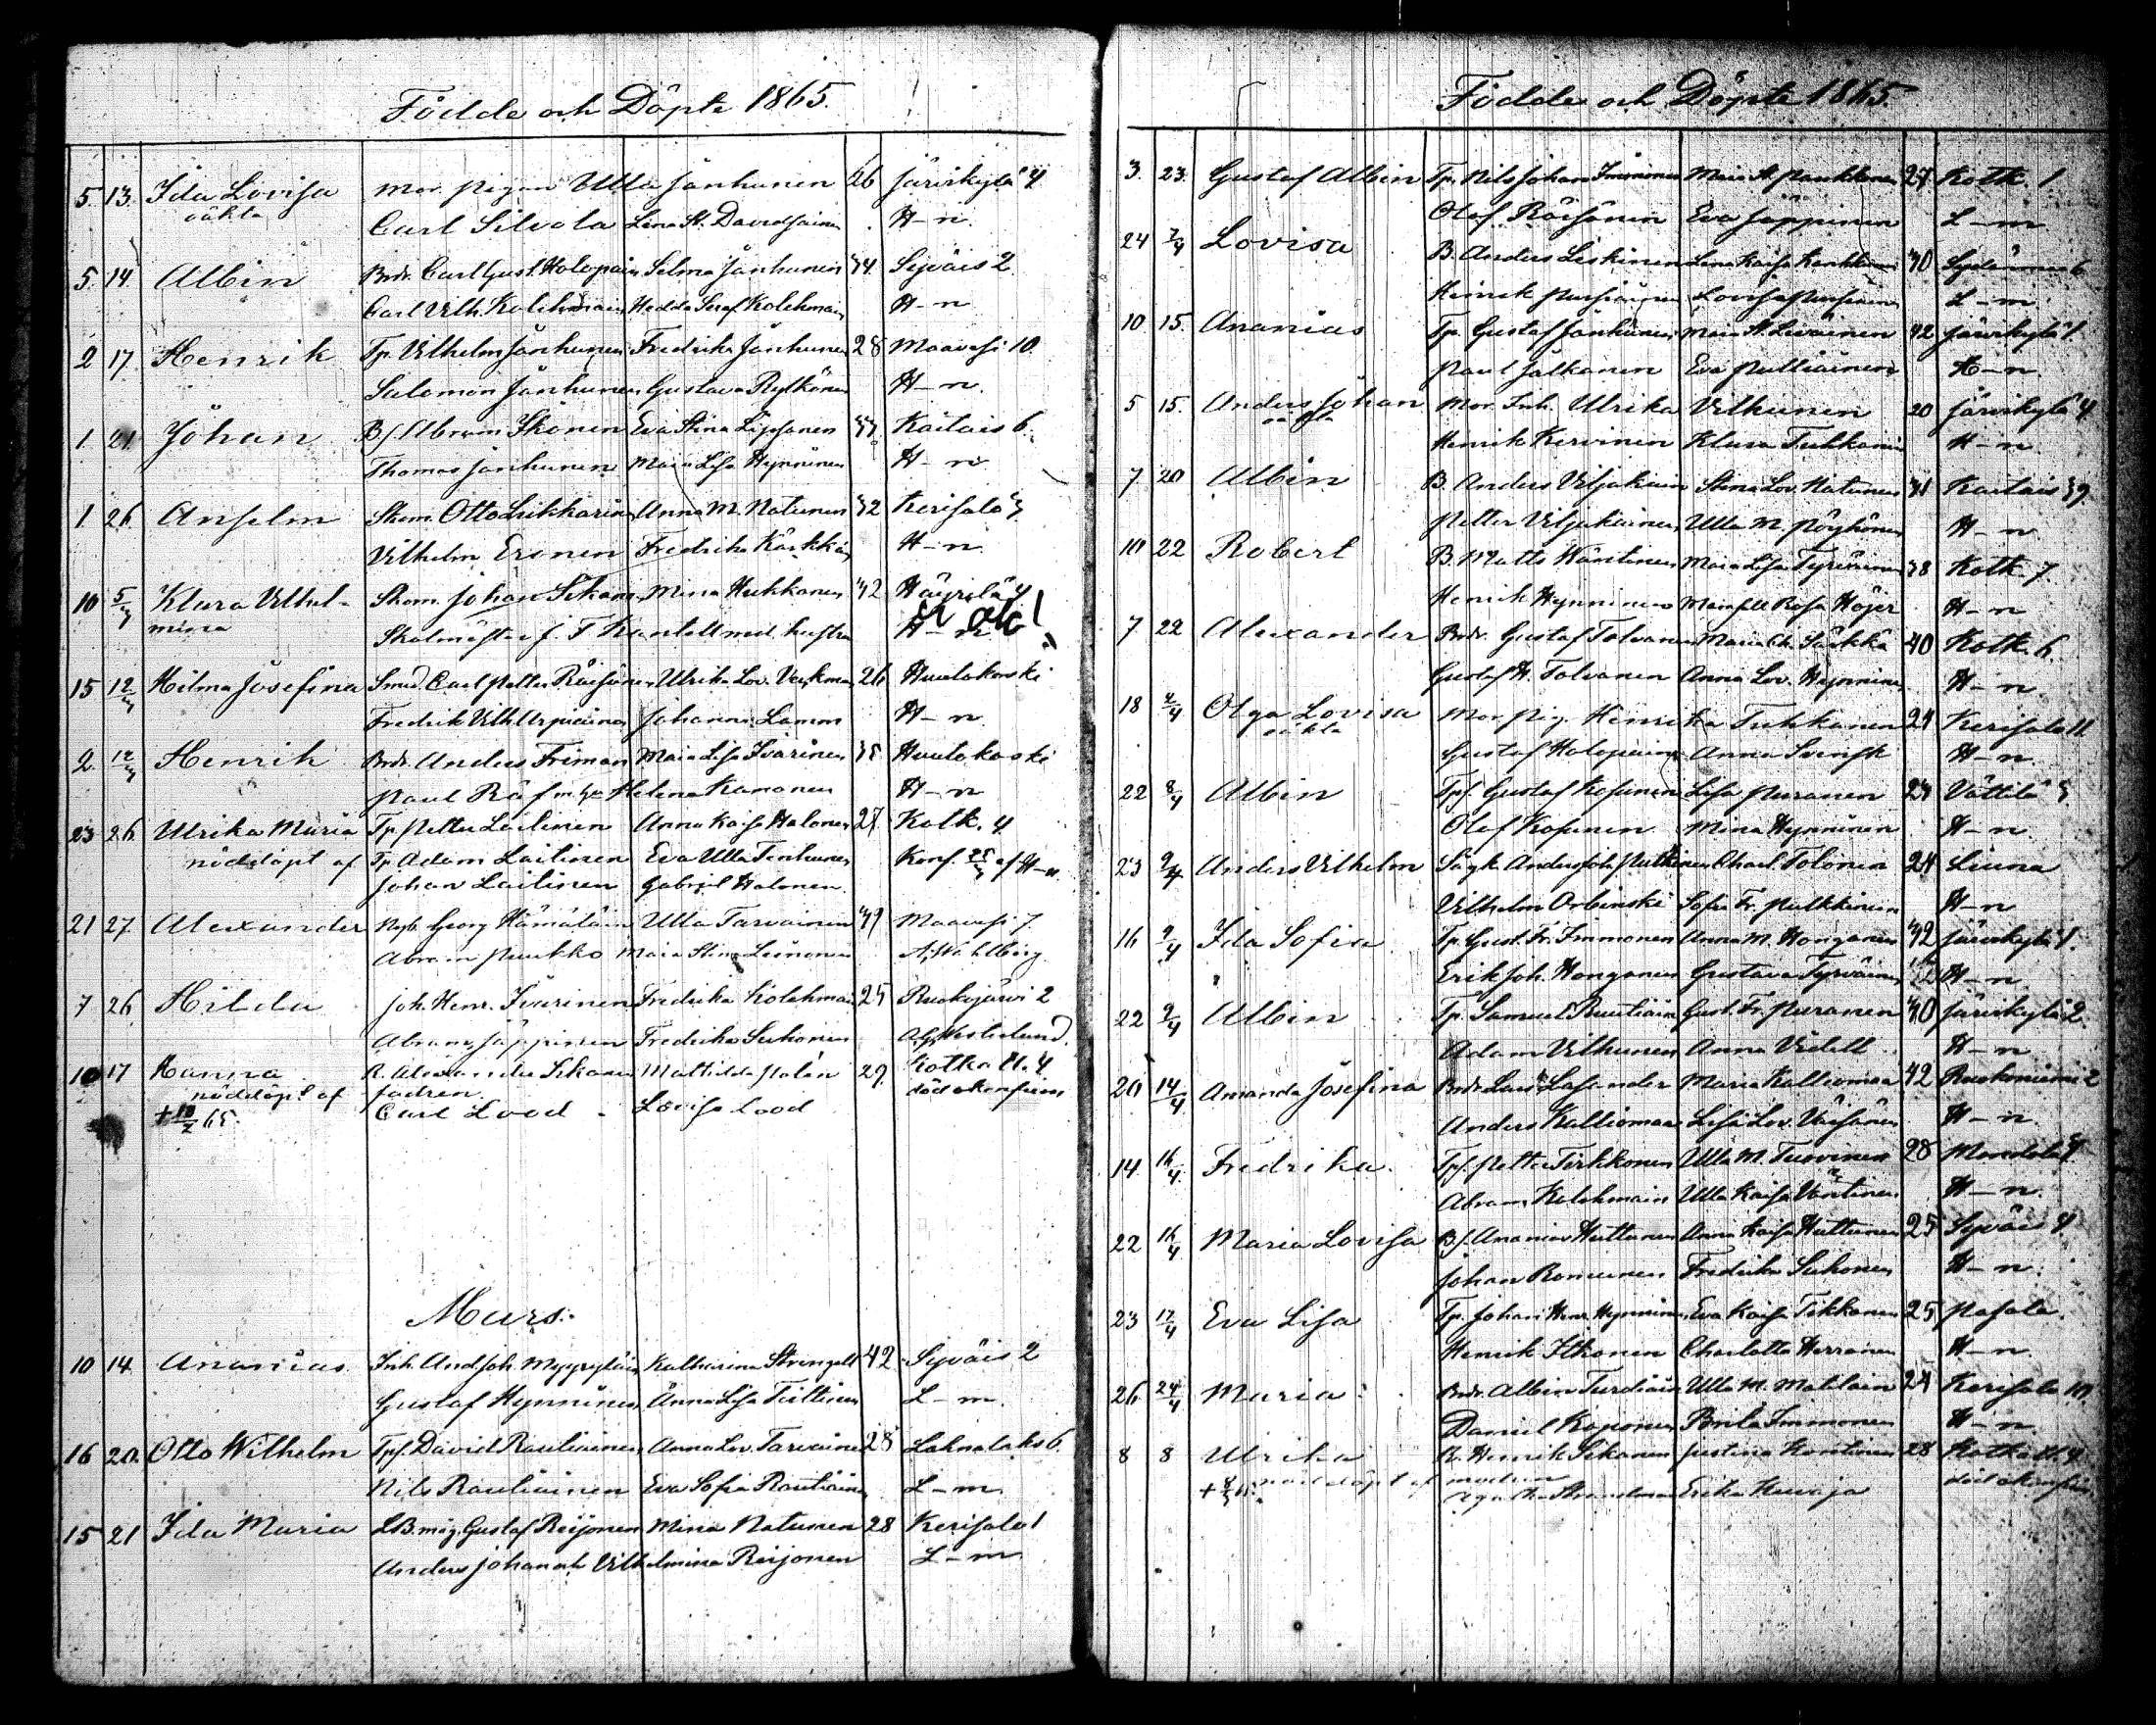 Födde och Döpte 1865.
5. 13. Ida Lovisa Mor. pigan Ulla Jänhunen 26 Järvikylä 4
oäkta Carl Silvola Lena St. Davidsainen H-n.
5. 14. Albin Brdr. Carl Gust. Holopain Selma Jänhunen 34 Syväis 2.
Carl Vilh. Kolehmain Hedda Seraf Kolehmain H-n
2 17. Henrik Tp. Vilhelm Jänhunen Fredrika Jänhunen 28 Maavesi 10.
Salomon Jänhunen Gustava Rytkönen H-n.
1. 21. Johan Bf. Abram Ikonen Eva Stina Lipsanen 37. Kaitais 6.
Thomas Jänhunen Maria Lisa Hynninen H-n.
1 26 Anselm Skom. Otto Liikkarin Anna M. Natunen 32 Kerisalo 3.
Vilhelm Eronen Fredrika Kärkkäin H-n.
10 5/3 Klara Vilhel- Skom. Johan Sikanen Mina Hukkanen 42 Häyrilä 4
mina Skolmästar f. T Kantell med hustru H-n.
15 12/3 Hilma Josefina Smed. Carl Petter Räisänen Ulrika Lov. Verkman 26 Huutokoski
Fredrik Vilh. Arpiainen Johanna Lamm H-n.
2. 12/3 Henrik Brdr. Anders Friman Maria Lisa Ivarinen 35 Huutokoski
Paul Räf m. h:u Helena Kananen H-n
23 26 Ulrika Maria Tp. Petter Laitinen Anna Kaisa Halonen 27 Kotk. 4
nöddöpt af Tp. Adam Laitinen Eva Ulla Tenhunen Konf. 25/3 af H-n.
Johan Laitinen Gabriel Halonen.
21 27. Alexander Nyb. Georg Hämäläin Ulla Tarvainen 39 Maavesi 7.
Abram Puukko Maria Stina Leinonen A. Wahlberg.
7 26. Hilda Joh. Henr. Ivarinen Fredrika Kolehmai 25 Ruokojärvi 2
Abram Jäppinen Fredrika Suhonen Alf. Westerlund.
10 17 Hanna R. Alexander Sikanen Mathilda Palén 29. Kotka H. 4
nöddöpt af fadren. död okonfirm
+ 18/2 65. Carl Lood - Lovisa Lood
Mars.
10 14. Ananias Inh. And Joh. Myyryläin Katharina Strengell 42 Syväis 2
Gustaf Hynninen Anna Lisa Tiittinen L-m.
16 20. Otto Wilhelm Tpf. David Rautiainen Anna Lov. Tarvainen 28 Lahnalaks 6.
Nils Rautiainen Eva Sofia Rautiain L-m.
15 21 Ida Maria LB. måg. Gustaf Reijonen Mina Natunen 28 Kerisalo 1
Anders Johan och Vilhelmina Reijonen L-m
Födde och Döpte 1865.
3. 23. Gustaf Albin Tp. Nils Johan Immonen Maria St. Paukkonen 27 Kotk. 1
Olof Räisänen Eva Jäppinen L-m
24 7/4 Lovisa B. Anders Liskinen Lena Kaisa 30 6
Henrik Lovisa L-m.
10 15. Ananias Tp. Gustaf Jänhunen Maria St. Levainen 42 Järvikylä 1.
Paul Jalkanen Eva Pulliainen H-n.
5 15. Anders Johan Mor. Inh. Ulrika Vilhunen 20 Järvikylä 4
oäkta Henrik Kervinen Klara Tuhkanen H-n.
7 20 Albin B. Anders Viljakain Stina Lov. Natunen 31 Kaitais 39.
Petter Viljakainen Ulla M. Pöyhönen H-n
10 22 Robert B. Matts Wäntinen Maria Lisa 38 Kotk. 7.
Henrik Hynninen Mamsell Rosa Höijer H-n
7 22 Alexander Brdr. Gustaf Tolvanen Maria Ch. Särkkä 40 Kotk. 6.
Gustaf H. Tolvanen Anna Lov. Hynninen H-n.
18 2/4 Olga Lovisa Mor. Pig. Henrika Tuhkanen 24 Kerisalo 11
oäkta Gustaf Holopainen Anna Svensk H-n.
22 8/4 Albin Tpf. Gustaf Kosunen Lisa Puranen 24 Vättilä 3
Olof Kosunen Mina Hynninen H-n
23 9/4 Anders Vilhelm Sågk. Anders Joh. Pulkkinen Charl. Tolonen 24 Liuna
Vilhelm Orbinski Sofia Fr. Pulkkinen H-n
16 9/4 Ida Sofia Tp. Gust. Fr. Immonen Anna M. Honganen 42 Järvikylä 1.
Erik Joh. Honganen Gustava Tyrväinen H-n.
22 9/4 Albin Tp. Samuel Rautiain Gust. Fr. Puranen 30 Järvikylä 2.
Adam Vilhunen Anna Videll H-n
20 14/4 Amanda Josefina Brdr. Lars Lassander Maria Kalliomaa 42 Ruokoniemi 2
Anders Kalliomaa Lisa Lov. Väisänen H-n.
14. 16/4 Fredrika. Tpf. Petter Tirkkonen Ulla M. Tuovinen 28
Abram Kolehmain Ulla Kaisa Väntinen H-n.
22 16/4 Maria Lovisa Bf. Ananias Huttunen Anna Kaisa Huttunen 25 Syväis 4.
Johan Romunen Fredrika Suhonen H-n.
23 17/4 Eva Lisa Tp. Johan Henr. Hynninen Eva Kaisa Tikkanen 25 Pasala.
Henrik Itkonen Charlotta Herranen H-n.
26 24/4 Maria Brdr. Albin Turdiain Ulla M. Matilain 24 Kerisalo 10.
Daniel Koponen Brita Immonen H-n
8 8 Ulrika R. Henrik Sikanen Justina 28 Kotka H. 4
nöddöpt af modren död okonfirm
Erika